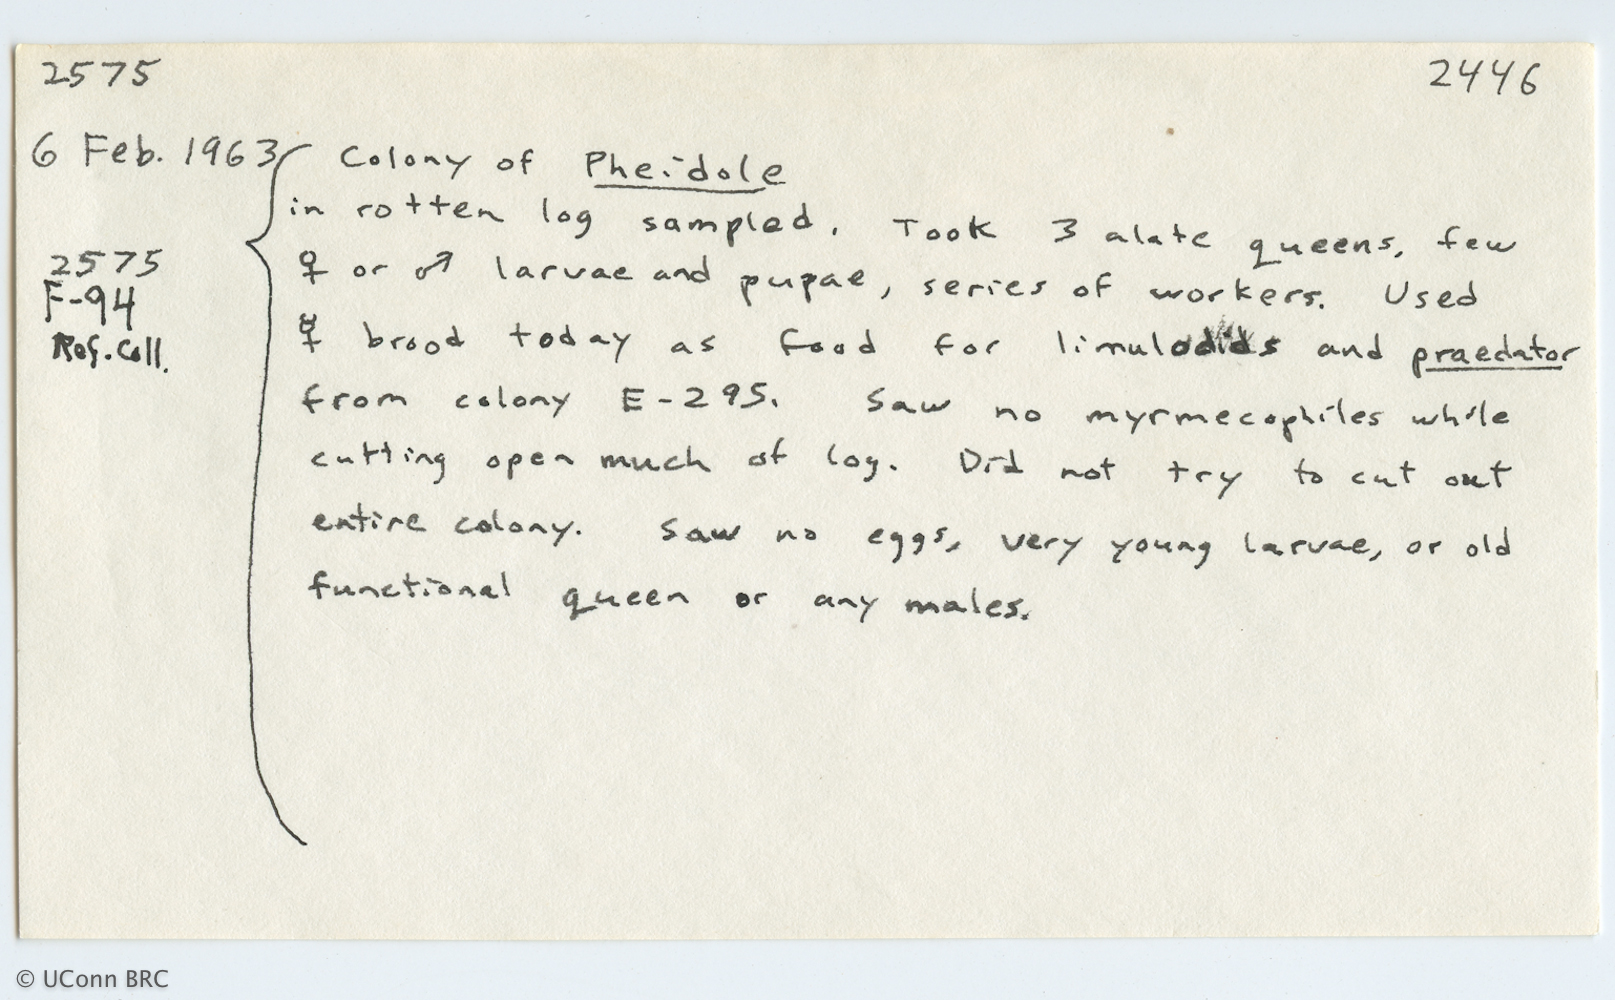 2575
2446
6 Feb. 1963
Colony of Pheidole
in rotten log sampled. Took 3 alate queens, few
♀ or ♂ larvae and pupae, series of workers. Used
☿ brood today as food for limulodids and praedator
from colony E-295. Saw no myrmecophiles while
cutting open much of log. Did not try to cut out
entire colony. Saw no eggs, very young larvae, or old
functional queen or any males.
2575
F-94
Ref. Coll.
© UConn BRC